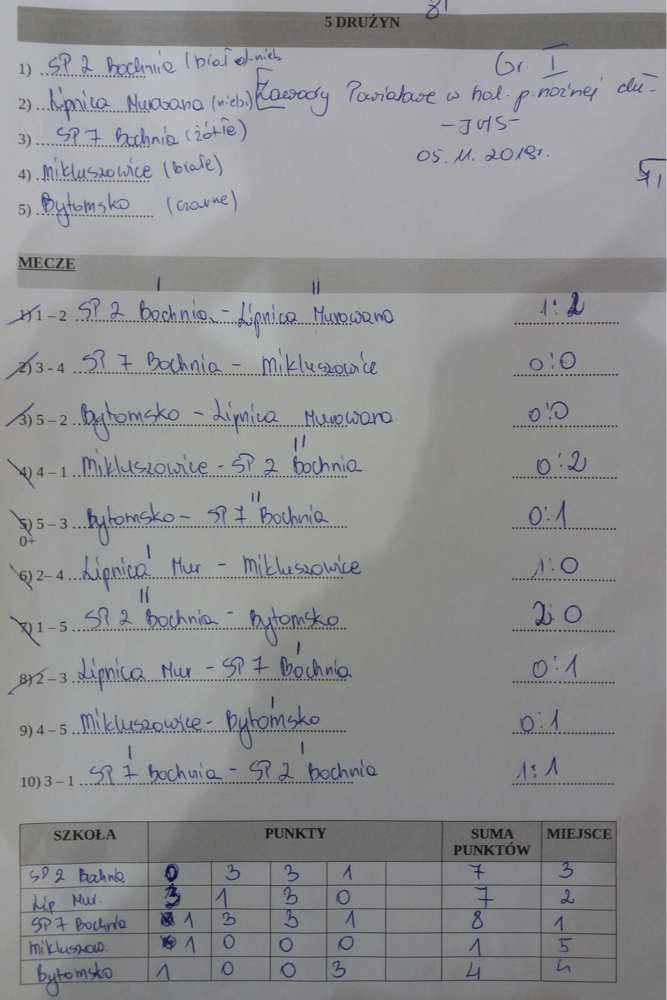 5 DRUŻYN
1) SP 2 Bochnia (biało-nieb. Gr. I
2) Lipnica Murowana (nieb.) Zawody Powiatowe w hal. p. nożnej dz.
3) SP 7 Bochnia (żółte) - IMS -
4) Mikluszowice (białe) 05. 11. 2019r.
5) Bytomsko (czarne)
MECZE
1) 1 – 2 SP 2 Bochnia - Lipnica Murowana 1:2
2) 3 - 4 SP 7 Bochnia - Mikluszowice 0:0
3) 5 – 2 Bytomsko - Lipnica Murowana 0:0
4) 4 – 1 Mikluszowice - SP 2 Bochnia 0:2
5) 5 – 3 Bytomsko - SP 7 Bochnia 0:1
0+
6) 2– 4 Lipnica Mur - Mikluszowice 1:0
7) 1 – 5 SP 2 Bochnia - Bytomsko 2:0
8) 2 – 3 Lipnica Mur - SP 7 Bochnia 0:1
9) 4 – 5 Mikluszowice - Bytomsko 0:1
10) 3 – 1 SP 7 Bochnia - SP 2 Bochnia 1:1
SZKOŁA PUNKTY SUMA PUNKTÓW MIEJSCE
SP 2 Bochnia 0 3 3 1 7 3
Lip. Mur. 3 1 3 0 7 2
SP 7 Bochnia 1 3 3 1 8 1
Mikluszow. 1 0 0 0 1 5
Bytomsko 1 0 0 3 4 4